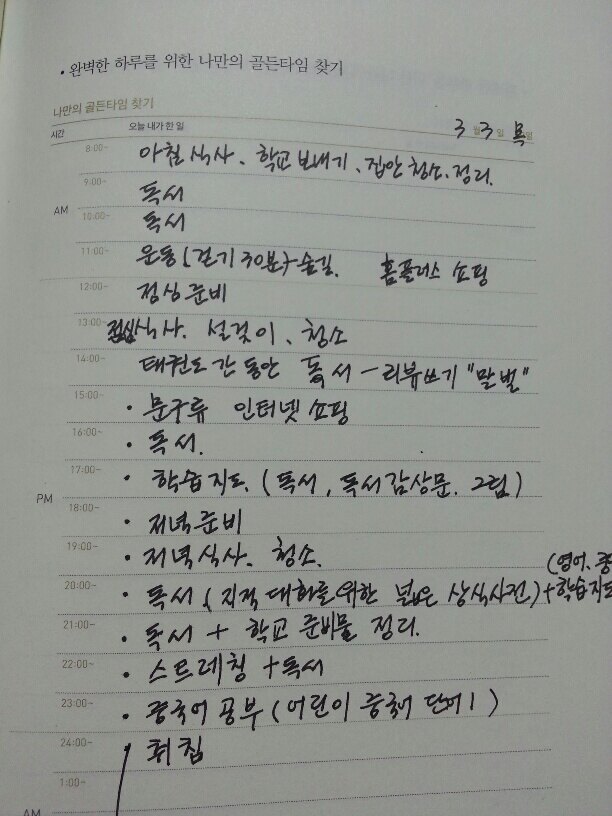 • 완벽한 하루를 위한 나만의 골든타임 찾기
나만의 골든타임 찾기
시간 오늘 내가 한 일 3월 3일 목요일
8:00~ 아침식사. 학교 보내기. 집안청소. 정리.
9:00~ 독서
AM
10:00~ 독서
11:00~ 운동(걷기 30분)-숲길. 홈플러스 쇼핑
12:00~ 점심준비
13:00~ 점심식사. 설겆이. 청소
14:00~ 태권도 간 동안 독서 - 리뷰쓰기 "말벌"
15:00~ • 문구류 인터넷 쇼핑
16:00~ • 독서.
17:00~ • 학습지도. (독서, 독서감상문. 그림)
PM
18:00~ • 저녁준비
19:00~ • 저녁식사. 청소.
(영어, 중
20:00~ • 독서 (지적 대화를 위한 넓은 상식사전) + 학습지도
21:00~ • 독서 + 학교 준비물 정리.
22:00~ • 스트레칭 + 독서
23:00~ • 중국어 공부 (어린이 중국어 단어 1)
24:00~ 취침
1:00~
AM